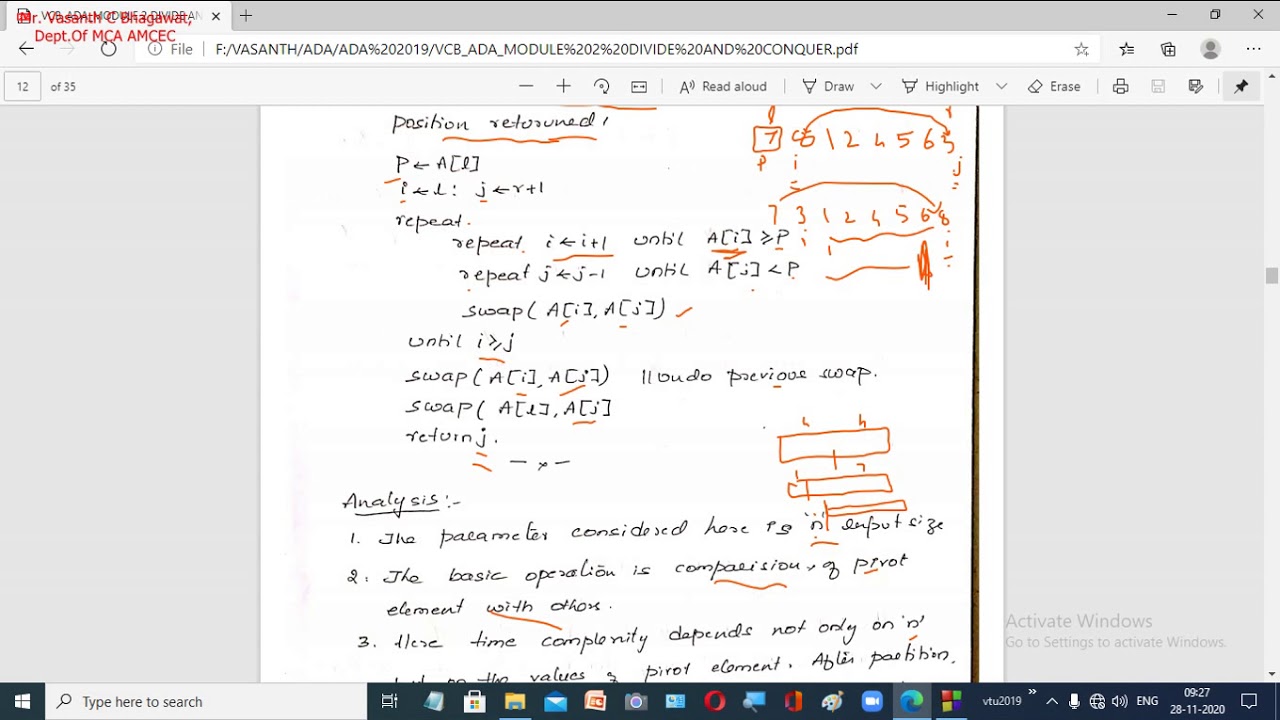 VCB_ADA_MODULE 2 DIVIDE AN
Dr. Vasanth C Bhagawat,
Dept.Of MCA AMCEC
File F:/VASANTH/ADA/ADA%202019/VCB_ADA_MODULE%202%20DIVIDE%20AND%20CONQUER.pdf
12 of 35 Read aloud Draw Highlight Erase
Position returuned!
P ← A[l]
i ← l : j ← r+1
repeat.
repeat i ← i+1 until A[i] ≥ P
repeat j ← j-1 until A[j] < P
swap( A[i], A[j])
until i ≥ j
swap( A[i], A[j]) // undo previous swap.
swap( A[l], A[j]
return j.
— x —
7 8 1 2 4 5 6 3
P i j
7 3 1 2 4 5 6 8
i i
Analysis:-
1. The parameter considered here is 'n' input size
2. The basic operation is comparision, of pivot
element with others.
3. Here time complexity depends not only on 'n'
but on the values of pivot element. After partition,
Activate Windows
Go to Settings to activate Windows.
Type here to search
vtu2019
ENG
09:27
28-11-2020